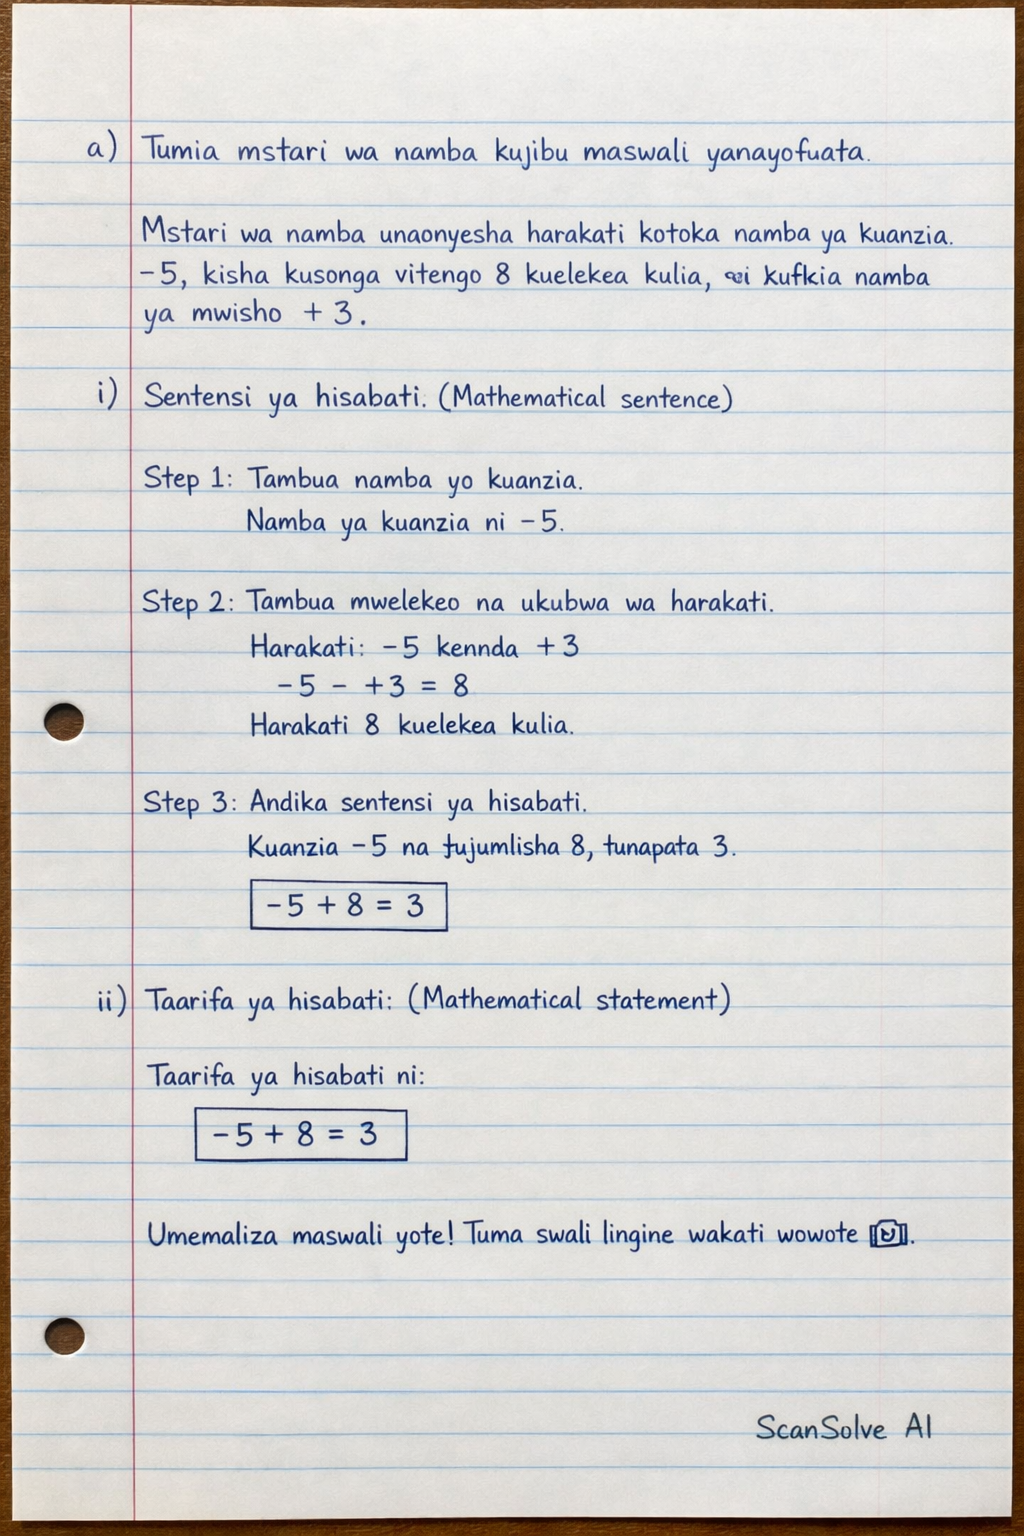 a) Tumia mstari wa namba kujibu maswali yanayofuata.
Mstari wa namba unaonyesha harakati kotoka namba ya kuanzia.
-5, kisha kusonga vitengo 8 kuelekea kulia, kufkia namba
ya mwisho + 3.
i) Sentensi ya hisabati. (Mathematical sentence)
Step 1: Tambua namba yo kuanzia.
Namba ya kuanzia ni -5.
Step 2: Tambua mwelekeo na ukubwa wa harakati.
Harakati: -5 kennda +3
-5 - +3 = 8
Harakati 8 kuelekea kulia.
Step 3: Andika sentensi ya hisabati.
Kuanzia -5 na tujumlisha 8, tunapata 3.
-5 + 8 = 3
ii) Taarifa ya hisabati: (Mathematical statement)
Taarifa ya hisabati ni:
-5 + 8 = 3
Umemaliza maswali yote! Tuma swali lingine wakati wowote.
ScanSolve AI